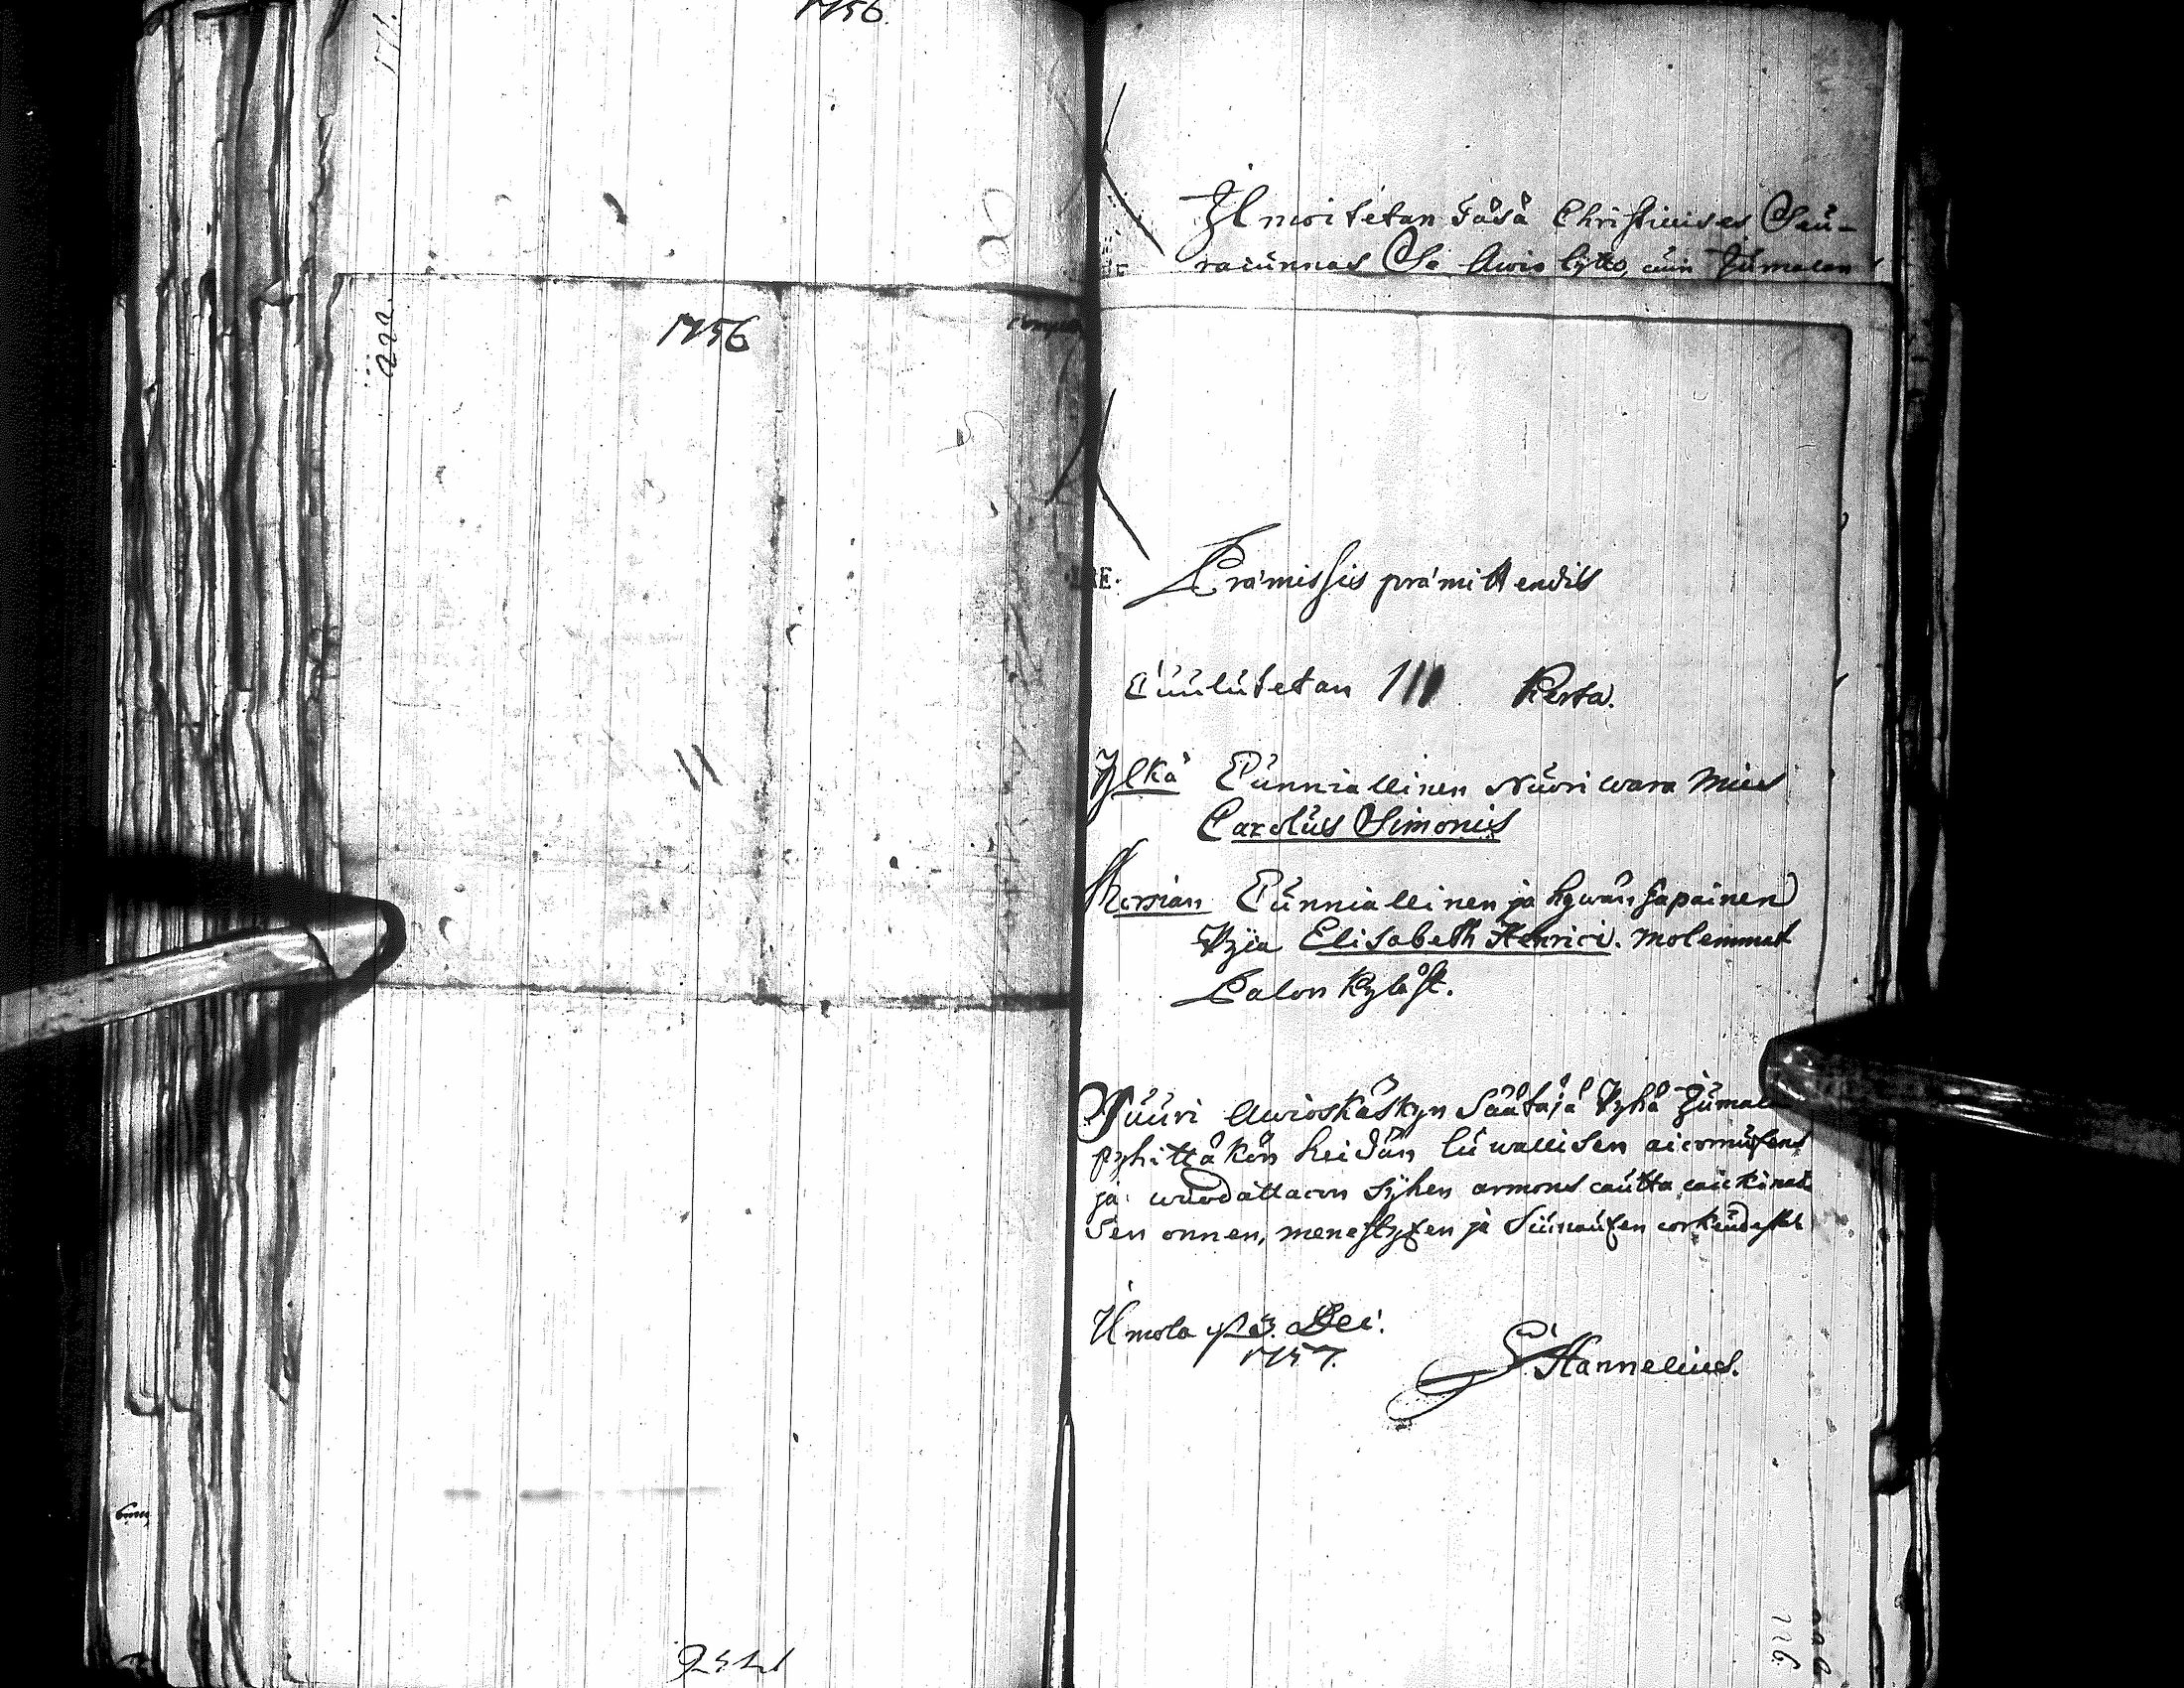 1756.
1756
11
Ilmoitetan täsä Christillises Seu-
racunnas Se Awio lijtto, cuin Jumalan
Præmissis præmittendis
Cuulutetan III Kerta.
Yljkä Cunniallinen Nuori wara Mies
Carolus Simonis
Morsian Cunniallinen ja hywän tapainen
Pijca Elisabeth Henrici. molemmat
Palon Kyläst.
Suuri Awioskäskyn Säätäjä Pyhä Jumala
pyhittäkön heidän luwallisen aicomusens
ja wuodattacon sijhen armons cautta caickinai-
sen onnen, menestyxen ja Siunauxen corkeudesta
Umola 3. Dec.
1757.
Hannelius.